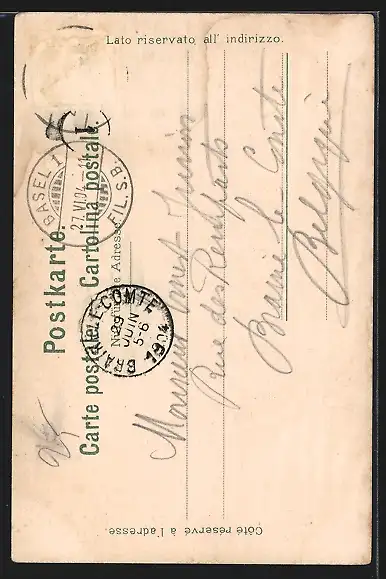 Lato riservato all' indirizzo.
Postkarte.
Carte postale. Cartolina postale.
Nur für die Adresse
BASEL 1
27.VI.04.-11
FIL. S.B.
BRAINE-LE-COMTE
29
JUIN
5-6
1904
Monsieur Ernest
Rue des Remparts
Braine le Comte
Belgique
Côté réservé à l'adresse.